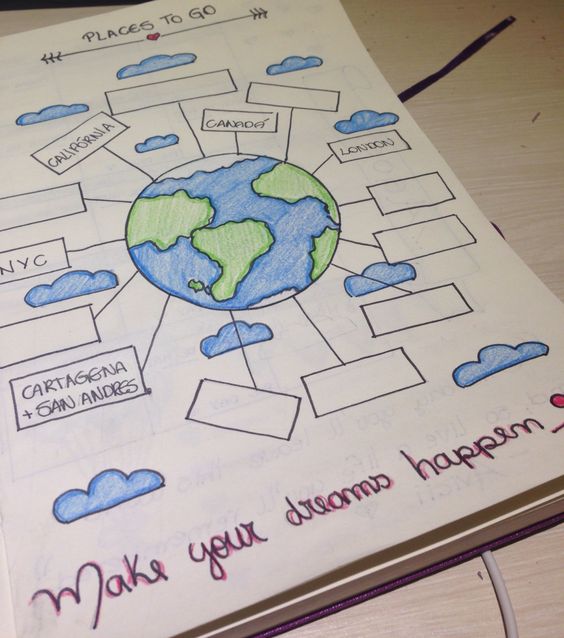 PLACES TO GO
CANADÁ
CALIFÓRNIA
LONDON
NYC
CARTAGENA
+ SAN ANDRES
Make your dreams happen